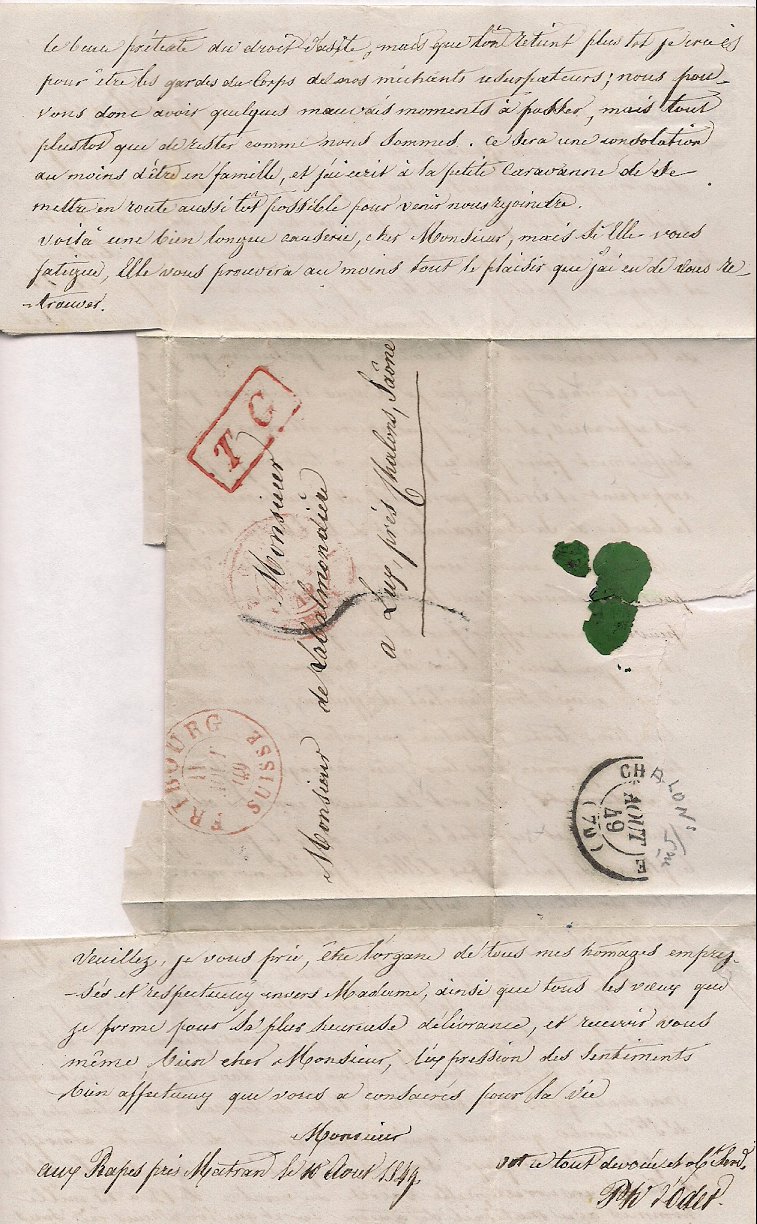 le beau prétexte du droit d'asile, mais que l'on retient plus tot je crois
pour être les gardes du Corps de nos méchants usurpateurs; nous pou-
vons donc avoir quelques mauvais moments à passer, mais tout
plustot que de rester comme nous sommes. ce sera une consolation
au moins d'être en famille, et j'ai ecrit à la petite Caravanne de se
mettre en route aussi tot possible pour venir nous rejoindre.
voilà une bien longue causerie, cher Monsieur, mais si Elle vous
fatigue, Elle vous prouvera au moins tout le plaisir que j'ai eu de vous re-
-trouver.
T C
Monsieur
Monsieur de Lasalmondière
a Lux, près Chalons, Saône
FRIBOURG
SUISSE
11
49
CHALON S
AOUT
49
(70)
veuillez, je vous prie, être l'organe de tous mes homages empres-
-sés et respectueux envers Madame, ainsi que tous les vœux que
je forme pour sa plus heureuse délivrance, et recevoir vous
même bien cher Monsieur, l'expression des sentiments
bien affectueux que vous a consacrés pour la vie
Monsieur
aux Rapes près Matran le 10 Aout 1849
votre tout devoué et obt Serv.
Ph. d'Odet.